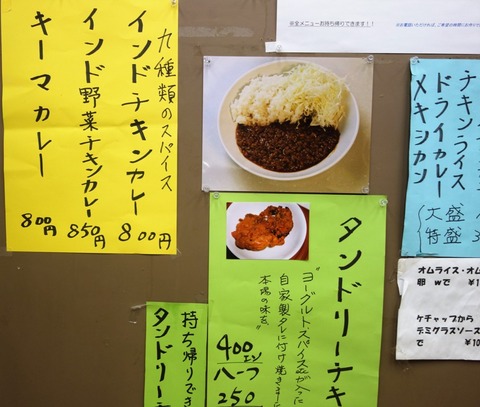 九種類のスパイス
インドチキンカレー
800円
インド野菜チキンカレー
850円
キーマカレー
800円
※全メニューお持ち帰りできます！！
タンドリーチキ
ヨーグルト、スパイス
自家製タレに付け焼きまし
本場の味を。
400エン
ハーフ
250
持ち帰りでき
タンドリーチ
チキンライス
ドライカレー
メキシカン
大盛
特盛
オムライス・オム
卵 wで ¥1
ケチャップから
デミグラスソース
で ¥10